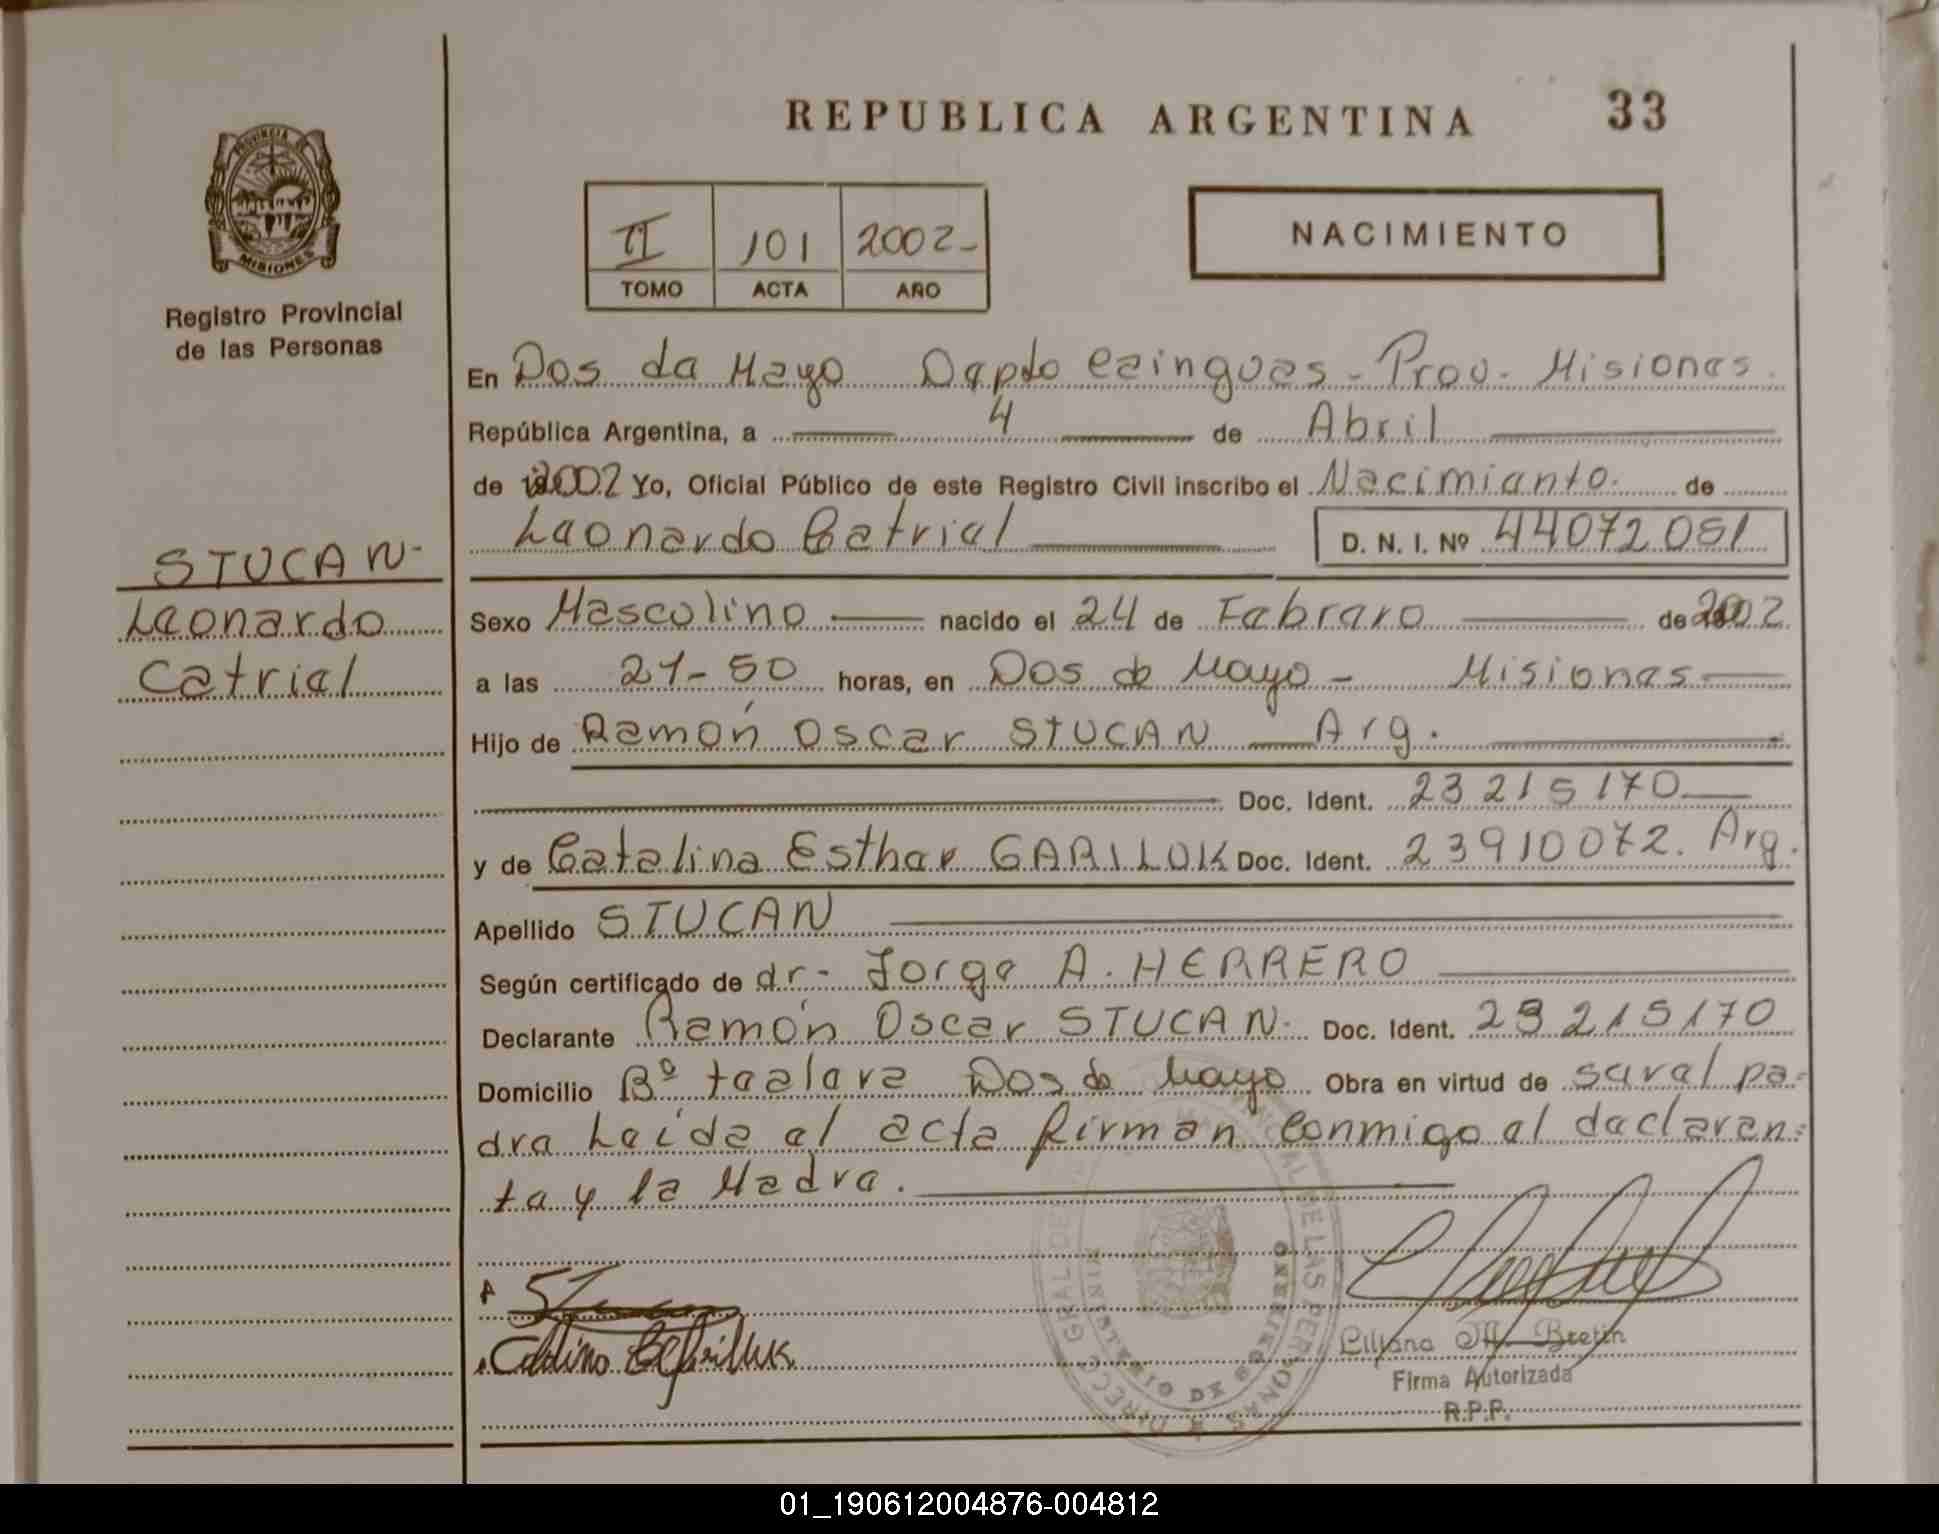 REPUBLICA ARGENTINA 33
PROVINCIA DE
MISIONES
Registro Provincial
de las Personas
II 101 2002-
TOMO ACTA AÑO
NACIMIENTO
En Dos de Mayo Depto Cainguas - Prov. Misiones.
República Argentina, a 4 de Abril
de 2002 Yo, Oficial Público de este Registro Civil inscribo el Nacimiento. de
Leonardo Catriel D. N. I. Nº 44072051
STUCAN-
Leonardo
Catriel
Sexo Masculino nacido el 24 de Febrero de 2002
a las 21-50 horas, en Dos de Mayo - Misiones
Hijo de Ramón Oscar STUCAN Arg.
Doc. Ident. 23215170
y de Catalina Esther GABILUK Doc. Ident. 23910072. Arg.
Apellido STUCAN
Según certificado de dr. Jorge A. HERRERO
Declarante Ramón Oscar STUCAN. Doc. Ident. 23215170
Domicilio Bº Dos de Mayo Obra en virtud de ser el pa=
dre Leída el acta firman Conmigo el declaran=
te y la Madre.
DIRECC. GRAL. DE LAS PERSONAS
MINISTERIO DE GOBIERNO
Liliana M. Bretin
Firma Autorizada
R.P.P.
01_190612004876-004812